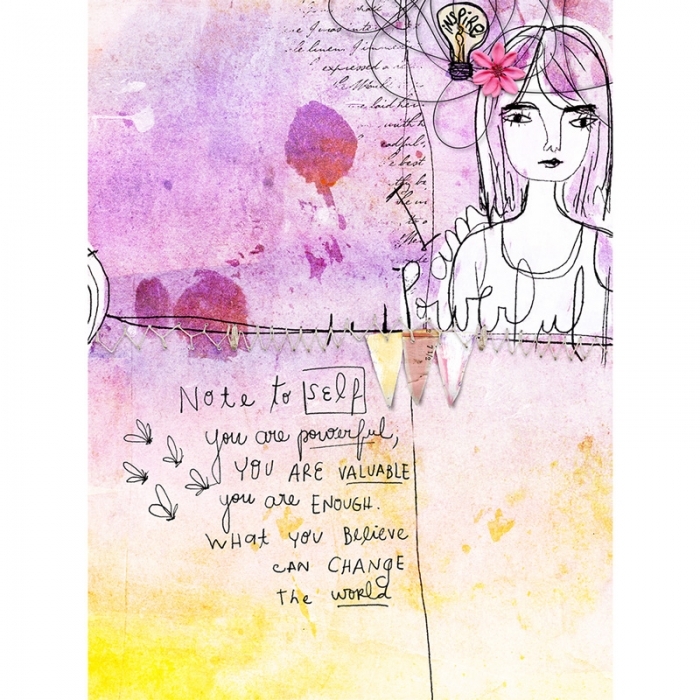 INSPIRE
expressed a
with h
best
to be
powerful
Note to self
you are powerful,
YOU ARE VALUABLE
you are ENOUGH.
WHAT YOU BelieVe
CAN CHANGE
the world